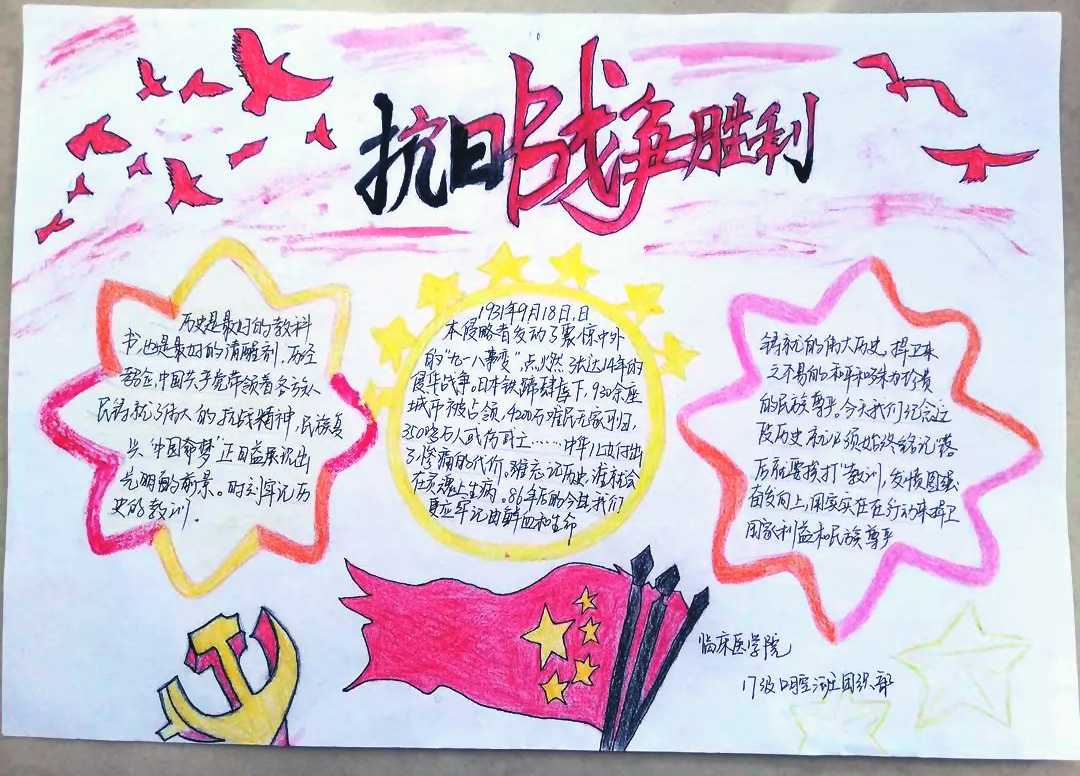 抗日战争胜利
历史是最好的教科
书,也是最好的清醒剂,历经
磨砺,中国共产党带领着各族人
民铸就了伟大的抗战精神,民族复
兴"中国命梦"正日益展现出
光明的前景。时刻牢记历
史的教训。
1931年9月18日,日
本侵略者发动了震惊中外
的"九一八事变",点燃了长达14年的
侵华战争。日本铁蹄肆虐下,930余座
城市被占领,4200万难民无家可归,
3500多万人或伤或亡……中华儿女付出
了惨痛的代价。谁忘记历史,谁就会
在灵魂上生病。86年后的今年,我们
更应牢记由鲜血和生命
铸就的伟大历史,捍卫来
之不易的和平和殊为珍贵
的民族尊严。今天我们纪念这
段历史,就必须始终铭记落
后就要挨打教训,发愤图强
奋发向上,用实实在在行动来捍卫
国家利益和民族尊严
临床医学院
17级口腔班团组织部